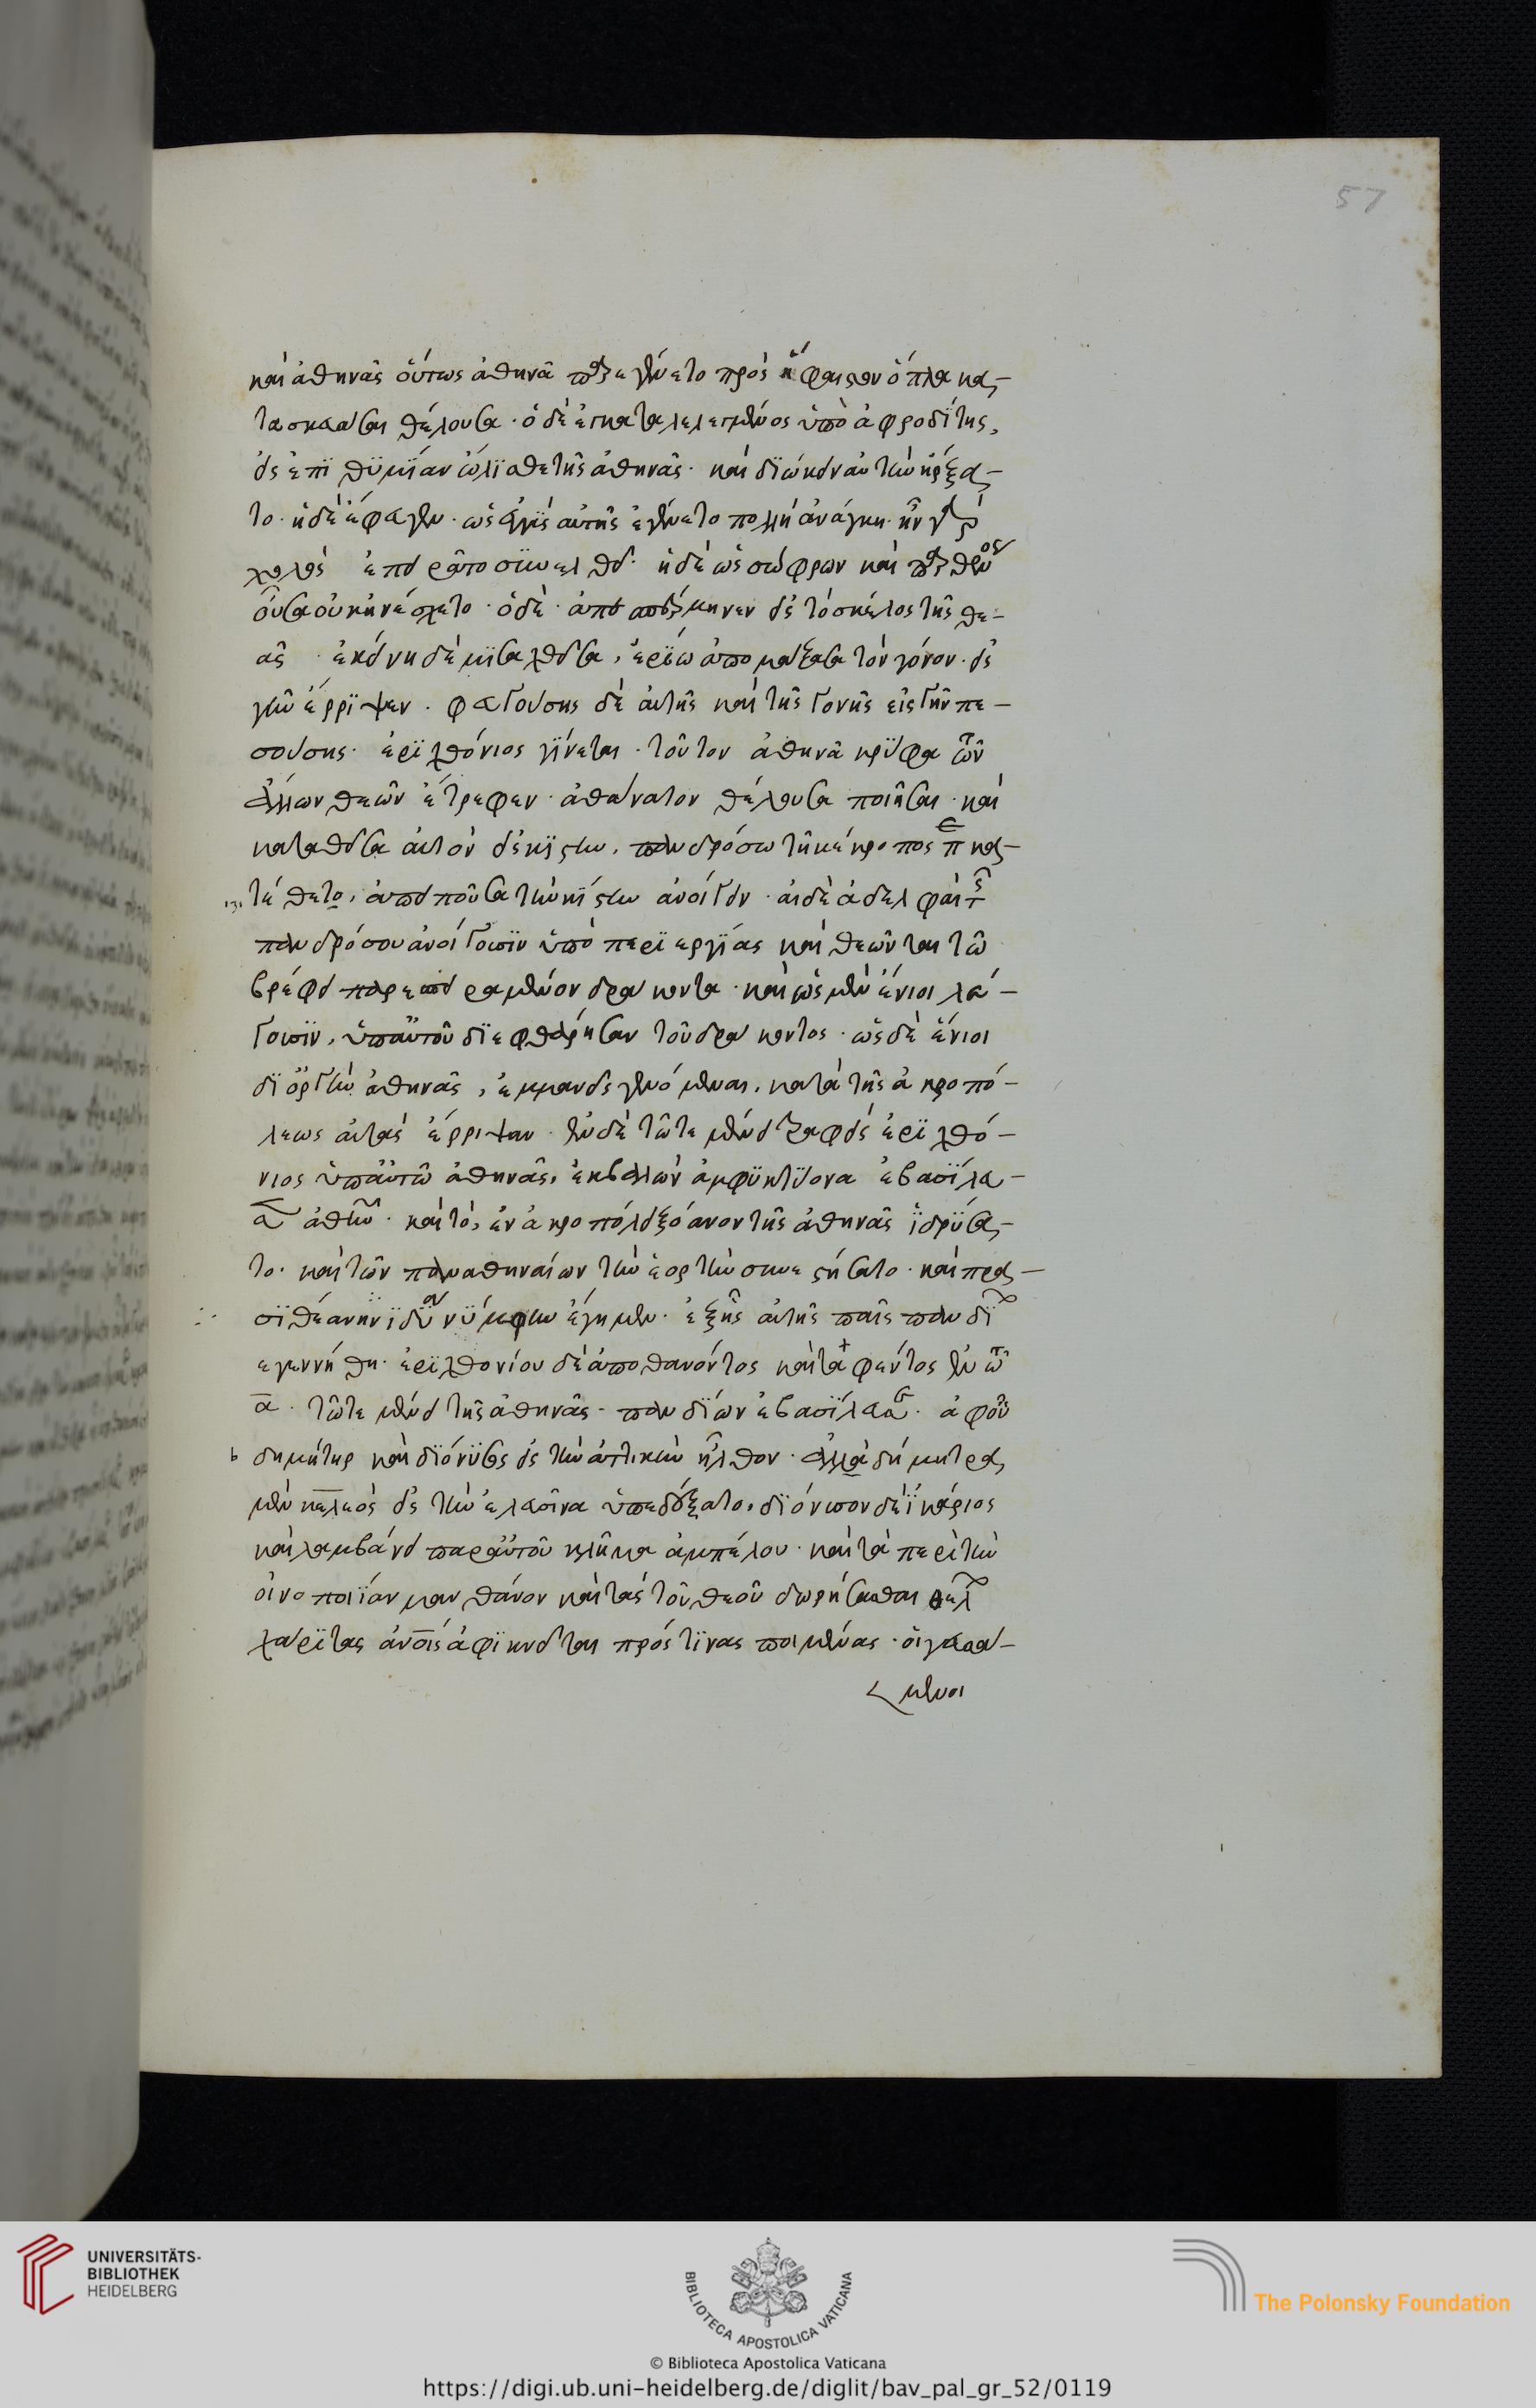 57
καὶ ἀθηνᾶς οὕτως ἀθηνᾶ παρεγένετο πρὸς ἥφαιστον ὅπλα κα-
τασκευάσαι θέλουσα · ὁ δὲ ἐγκαταλελειμμένος ὑπὸ ἀφροδίτης,
εἰς ἐπϊθϋμΐαν ὠλίσθε τῆς ἀθηνᾶς · καὶ διώκειν αὐτὴν ἤρξα-
το · ἡ δὲ ἔφευγεν · ὡς ἐγγὺς αὐτῆς ἐγένετο πολλῇ ἀνάγκῃ · ἦν γὰρ
χωλὸς ἐπειρᾶτο συνελθεῖν · ἡ δὲ ὡς σώφρων καὶ παρθένος
οὖσα οὐκ ἠνέσχετο · ὁ δὲ ἀπεσπέρμηνεν εἰς τὸ σκέλος τῆς θε-
ᾶς · ἐκείνη δὲ μϋσαχθεῖσα, ἐρίω ἀπομάξασα τὸν γόνον · εἰς
γῆν ἔρριψεν · φευγούσης δὲ αὐτῆς καὶ τῆς γονῆς εἰς γῆν πε-
σούσης · ἐρϊχθόνιος γίνεται · τοῦτον ἀθηνᾶ κρύφα τῶν
ἄλλων θεῶν ἔτρεφεν · ἀθάνατον θέλουσα ποιῆσαι · καὶ
καταθεῖσα αὐτὸν εἰς κίστην, πανδρόσω τῇ κέκροπος π κα-
τέθετο, ἀπειποῦσα τὴν κίστην ἀνοίγειν · αἱ δὲ ἀδελφαὶ τῆς
πανδρόσου ἀνοίγουσιν ὑπὸ περϊεργίας καὶ θεῶνται τῶ
βρέφει παρεσπειραμένον δράκοντα · καὶ ὡς μὲν ἔνιοι λέ-
γουσϊν, ὑπ' αὐτοῦ δϊεφθάρησαν τοῦ δράκοντος · ὡς δὲ ἔνιοι
δι' ὀργὴν ἀθηνᾶς, ἐμμανεῖς γενόμεναι, κατὰ τῆς ἀκροπό-
λεως αὐτὰς ἔρριψαν · ἐν δὲ τῶ τεμένει τραφεὶς ἐρϊχθό-
νιος ὑπ' αὐτῶ ἀθηνᾶς, ἐκβαλὼν ἀμφϋκτϋονα ἐβασίλευ-
σεν ἀθηνῶν · καὶ τὸ, ἐν ἀκροπόλει ξόανον τῆς ἀθηνᾶς ἱδρύσα-
το · καὶ τῶν παναθηναίων τὴν ἑορτὴν συνεστήσατο · καὶ πρα-
σϊθέαν νηΐδα νύμφην ἔγημεν · ἐξ ἧς αὐτῆς παῖς πανδί
εγεννήθη · ἐρϊχθονίου δὲ ἀποθανόντος καὶ ταφέντος ἐν τῶ
α · τῶ τεμένει τῆς ἀθηνᾶς · πανδίων ἐβασίλευσεν · ἀφ' οὗ
δημήτηρ καὶ διόνϋσος εἰς τὴν ἀττικὴν ἦλθον · ἀλλὰ δήμητρα
μὲν κελεὸς εἰς τὴν ἐλευσῖνα ὑπεδέξατο, διόνυσον δὲ ἰκάριος
καὶ λαμβάνει παρ' αὐτοῦ κλῆμα ἀμπέλου · καὶ τὰ περὶ τὴν
οἰνοποιΐαν μανθάνον καὶ τὰς τοῦ θεοῦ δωρήσασθαι θέλ
χάρϊτας ἀνοις ἀφϊκνεῖται πρός τϊνας ποιμένας · οἱ γευσά-
μενοι
UNIVERSITÄTS-
BIBLIOTHEK
HEIDELBERG
BIBLIOTECA APOSTOLICA VATICANA
© Biblioteca Apostolica Vaticana
The Polonsky Foundation
https://digi.ub.uni-heidelberg.de/diglit/bav_pal_gr_52/0119